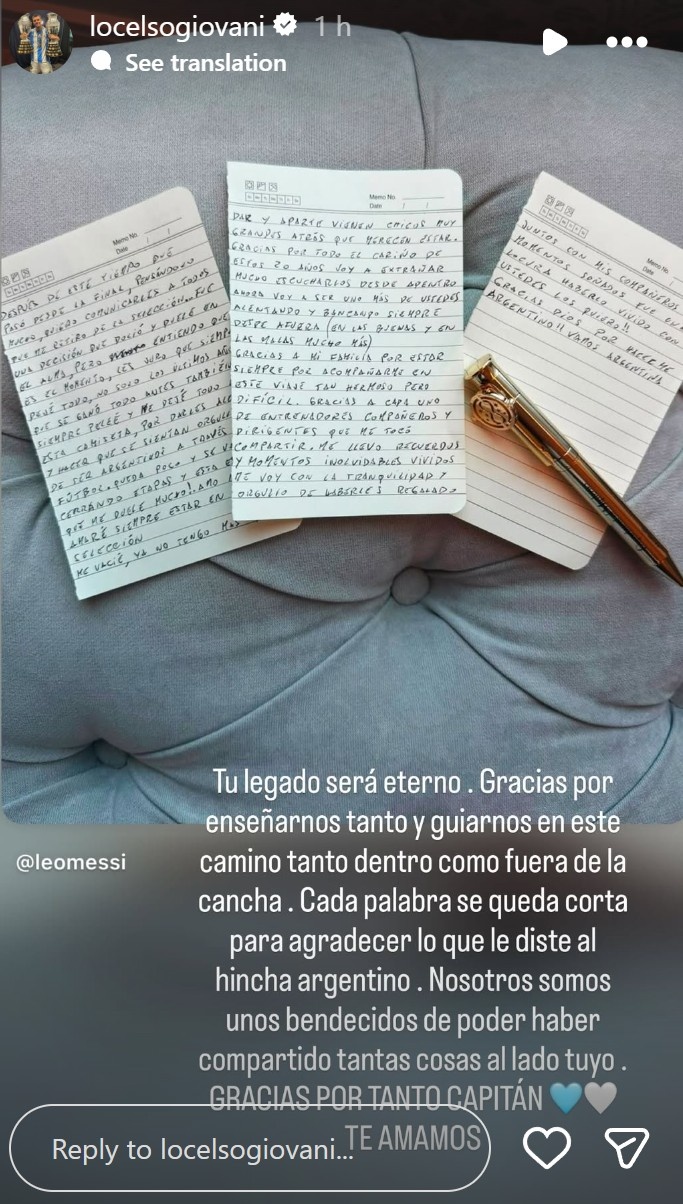 locelsogiovani 1 h
See translation
Memo No.
Date / /
DESPUES DE ESTE TIEMPO QUE
PASÓ DESDE LA FINAL, PENSÁNDOLO
MUCHO, QUIERO COMUNICARLES A TODOS
QUE ME RETIRO DE LA SELECCIÓN. FUE
UNA DECISIÓN QUE DOLIÓ Y DUELE EN
EL ALMA, PERO ENTIENDO QUE
ES EL MOMENTO. LES JURO QUE SIEMPRE
DEJÉ TODO, NO SOLO LOS ULTIMOS AÑOS
QUE SE GANÓ TODO ANTES TAMBIÉN
SIEMPRE PELEÉ Y ME DEJÉ TODO
ESTA CAMISETA, POR DARLES ALE
Y HACER QUE SE SIENTAN ORGULL
DE SER ARGENTINOS A TRAVÉS
FÚTBOL. QUEDA POCO Y SE V
CERRANDO ETAPAS Y ESTA E
QUE ME DUELE MUCHO!. AMO
AMARÉ SIEMPRE ESTAR EN
SELECCIÓN
ME VACIÉ, YA NO TENGO MÁS
Memo No.
Date / /
DAR Y APARTE VIENEN CHICOS MUY
GRANDES ATRÁS QUE MERECEN ESTAR.
GRACIAS POR TODO EL CARIÑO DE
ESTOS 20 AÑOS VOY A EXTRAÑAR
MUCHO ESCUCHARLOS DESDE ADENTRO
AHORA VOY A SER UNO MÁS DE USTEDES
ALENTANDO Y BANCANDO SIEMPRE
DESDE AFUERA (EN LAS BUENAS Y EN
LAS MALAS MUCHO MÁS)
GRACIAS A MI FAMILIA POR ESTAR
SIEMPRE POR ACOMPAÑARME EN
ESTE VIAJE TAN HERMOSO PERO
DIFÍCIL. GRACIAS A CADA UNO
DE ENTRENADORES COMPAÑEROS Y
DIRIGENTES QUE ME TOCÓ
COMPARTIR. ME LLEVO RECUERDOS
Y MOMENTOS INOLVIDABLES VIVIDOS
ME VOY CON LA TRANQUILIDAD Y
ORGULLO DE HABERLES REGALADO
Memo No.
Date / /
JUNTOS CON MIS COMPAÑEROS
MOMENTOS SOÑADOS QUE
LOCURA HABERLO VIVIDO CON
USTEDES LOS QUIERO!!
GRACIAS DIOS POR HACERME
ARGENTINO!! VAMOS ARGENTINA
Tu legado será eterno . Gracias por
enseñarnos tanto y guiarnos en este
@leomessi
camino tanto dentro como fuera de la
cancha . Cada palabra se queda corta
para agradecer lo que le diste al
hincha argentino . Nosotros somos
unos bendecidos de poder haber
compartido tantas cosas al lado tuyo .
GRACIAS POR TANTO CAPITÁN 🩵🤍
TE AMAMOS
Reply to locelsogiovani...